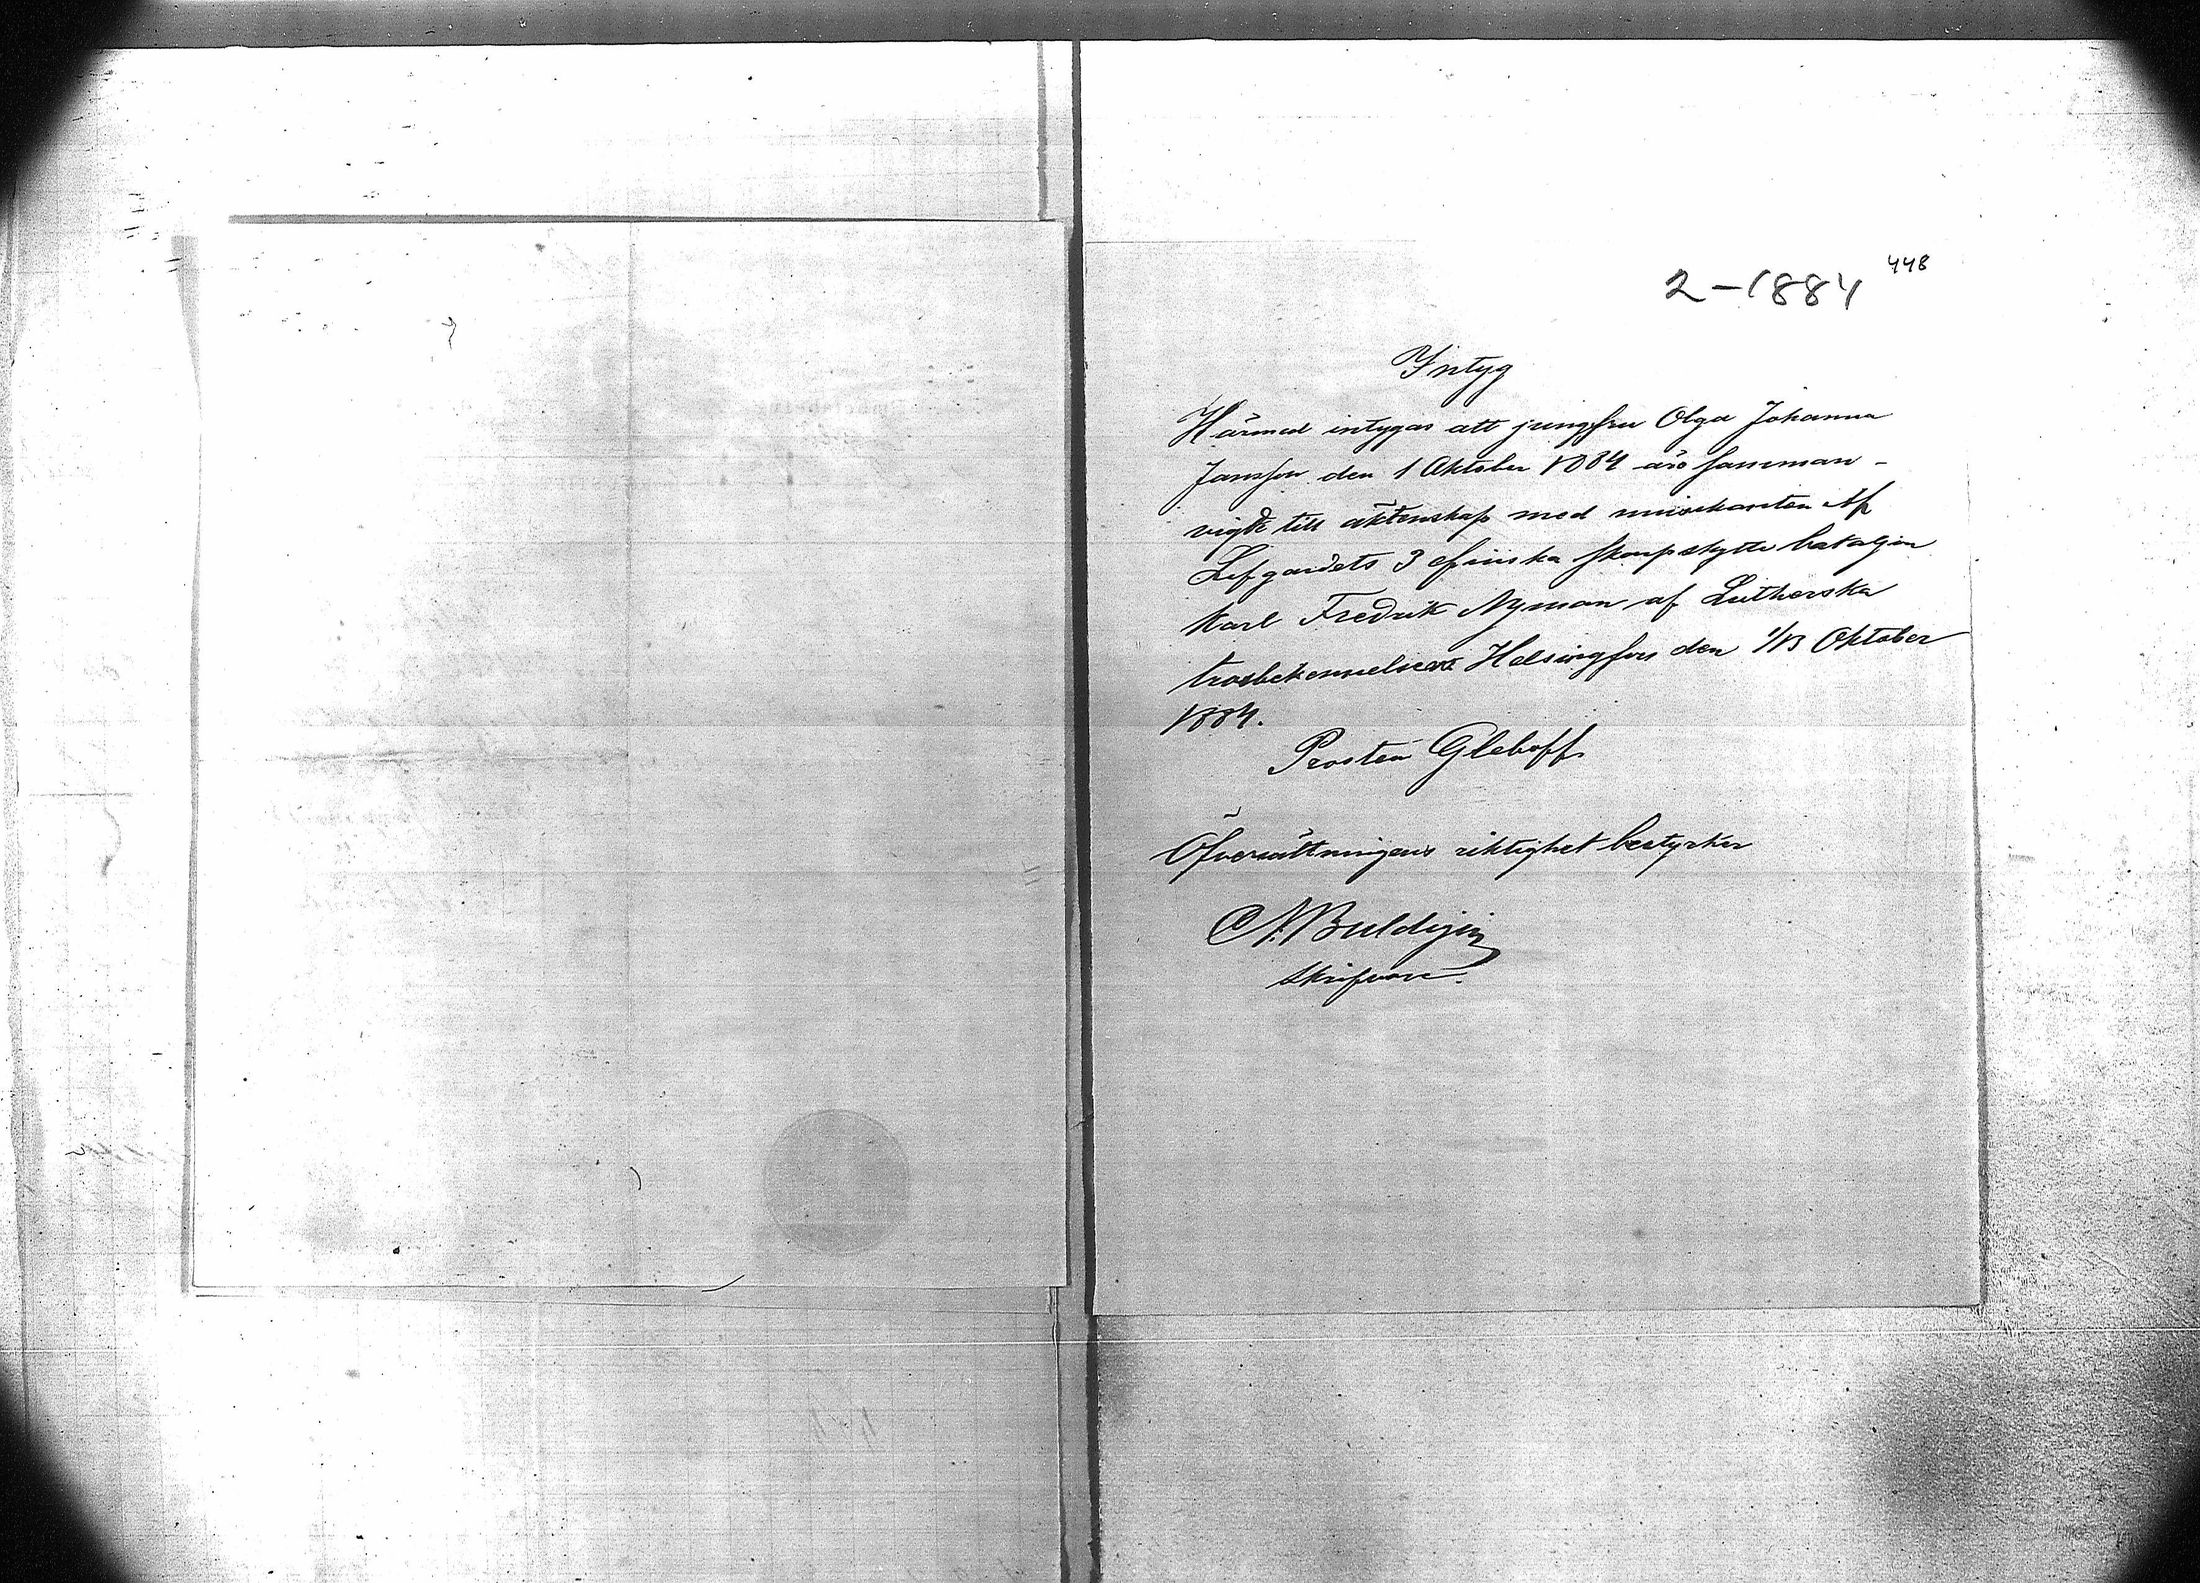 2-1884
448
Intyg
Härmed intygas att jungfru Olga Johanna
Jansson den 1 Oktober 1884 äro samman-
vigde till äktenskap med musikanten Af
Lifgardets 3 Finska skarpskytte bataljon
Karl Fredrik Nyman af Lutherska
trosbekennelsen Helsingfors den 1/13 Oktober
1884.
Prosten Gleboff
Öfversättningens riktighet bestyrker
Skrifvare.